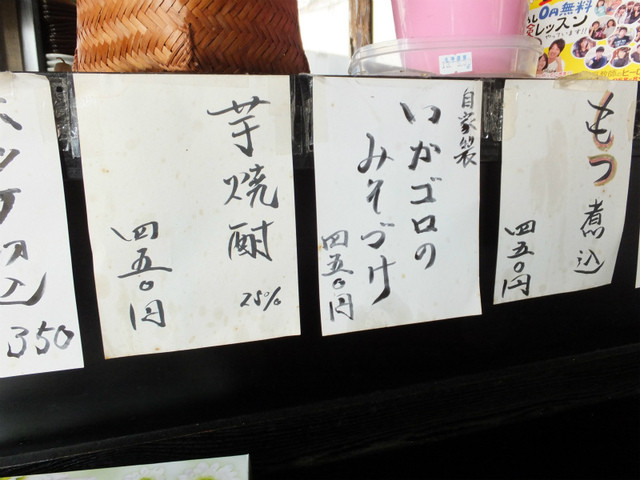 もつ煮込
四五〇円
自家製
いかゴロの
みそづけ
四五〇円
芋焼酎
25%
四五〇円
350
0円無料
レッスン